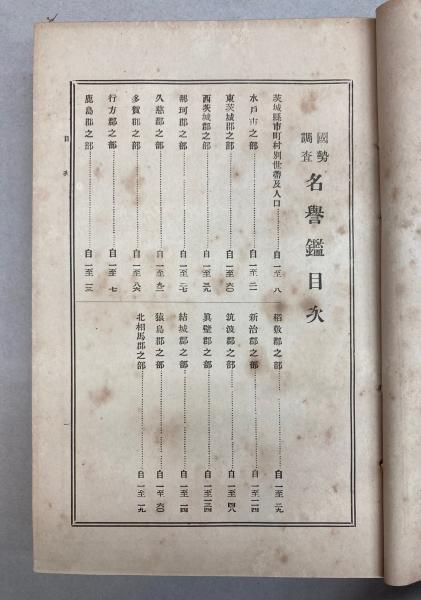 國勢調査 名譽鑑目次
茨城縣市町村別世帶及人口……自一至八
水戶市之部……自一至二一
東茨城郡之部……自一至六〇
西茨城郡之部……自一至三九
那珂郡之部……自一至二七
久慈郡之部……自一至九二
多賀郡之部……自一至八六
行方郡之部……自一至一七
鹿島郡之部……自一至二三
稻敷郡之部……自一至二九
新治郡之部……自一至二四
筑波郡之部……自一至四八
眞壁郡之部……自一至三四
結城郡之部……自一至二四
猿島郡之部……自一至六〇
北相馬郡之部……自一至一九
目次